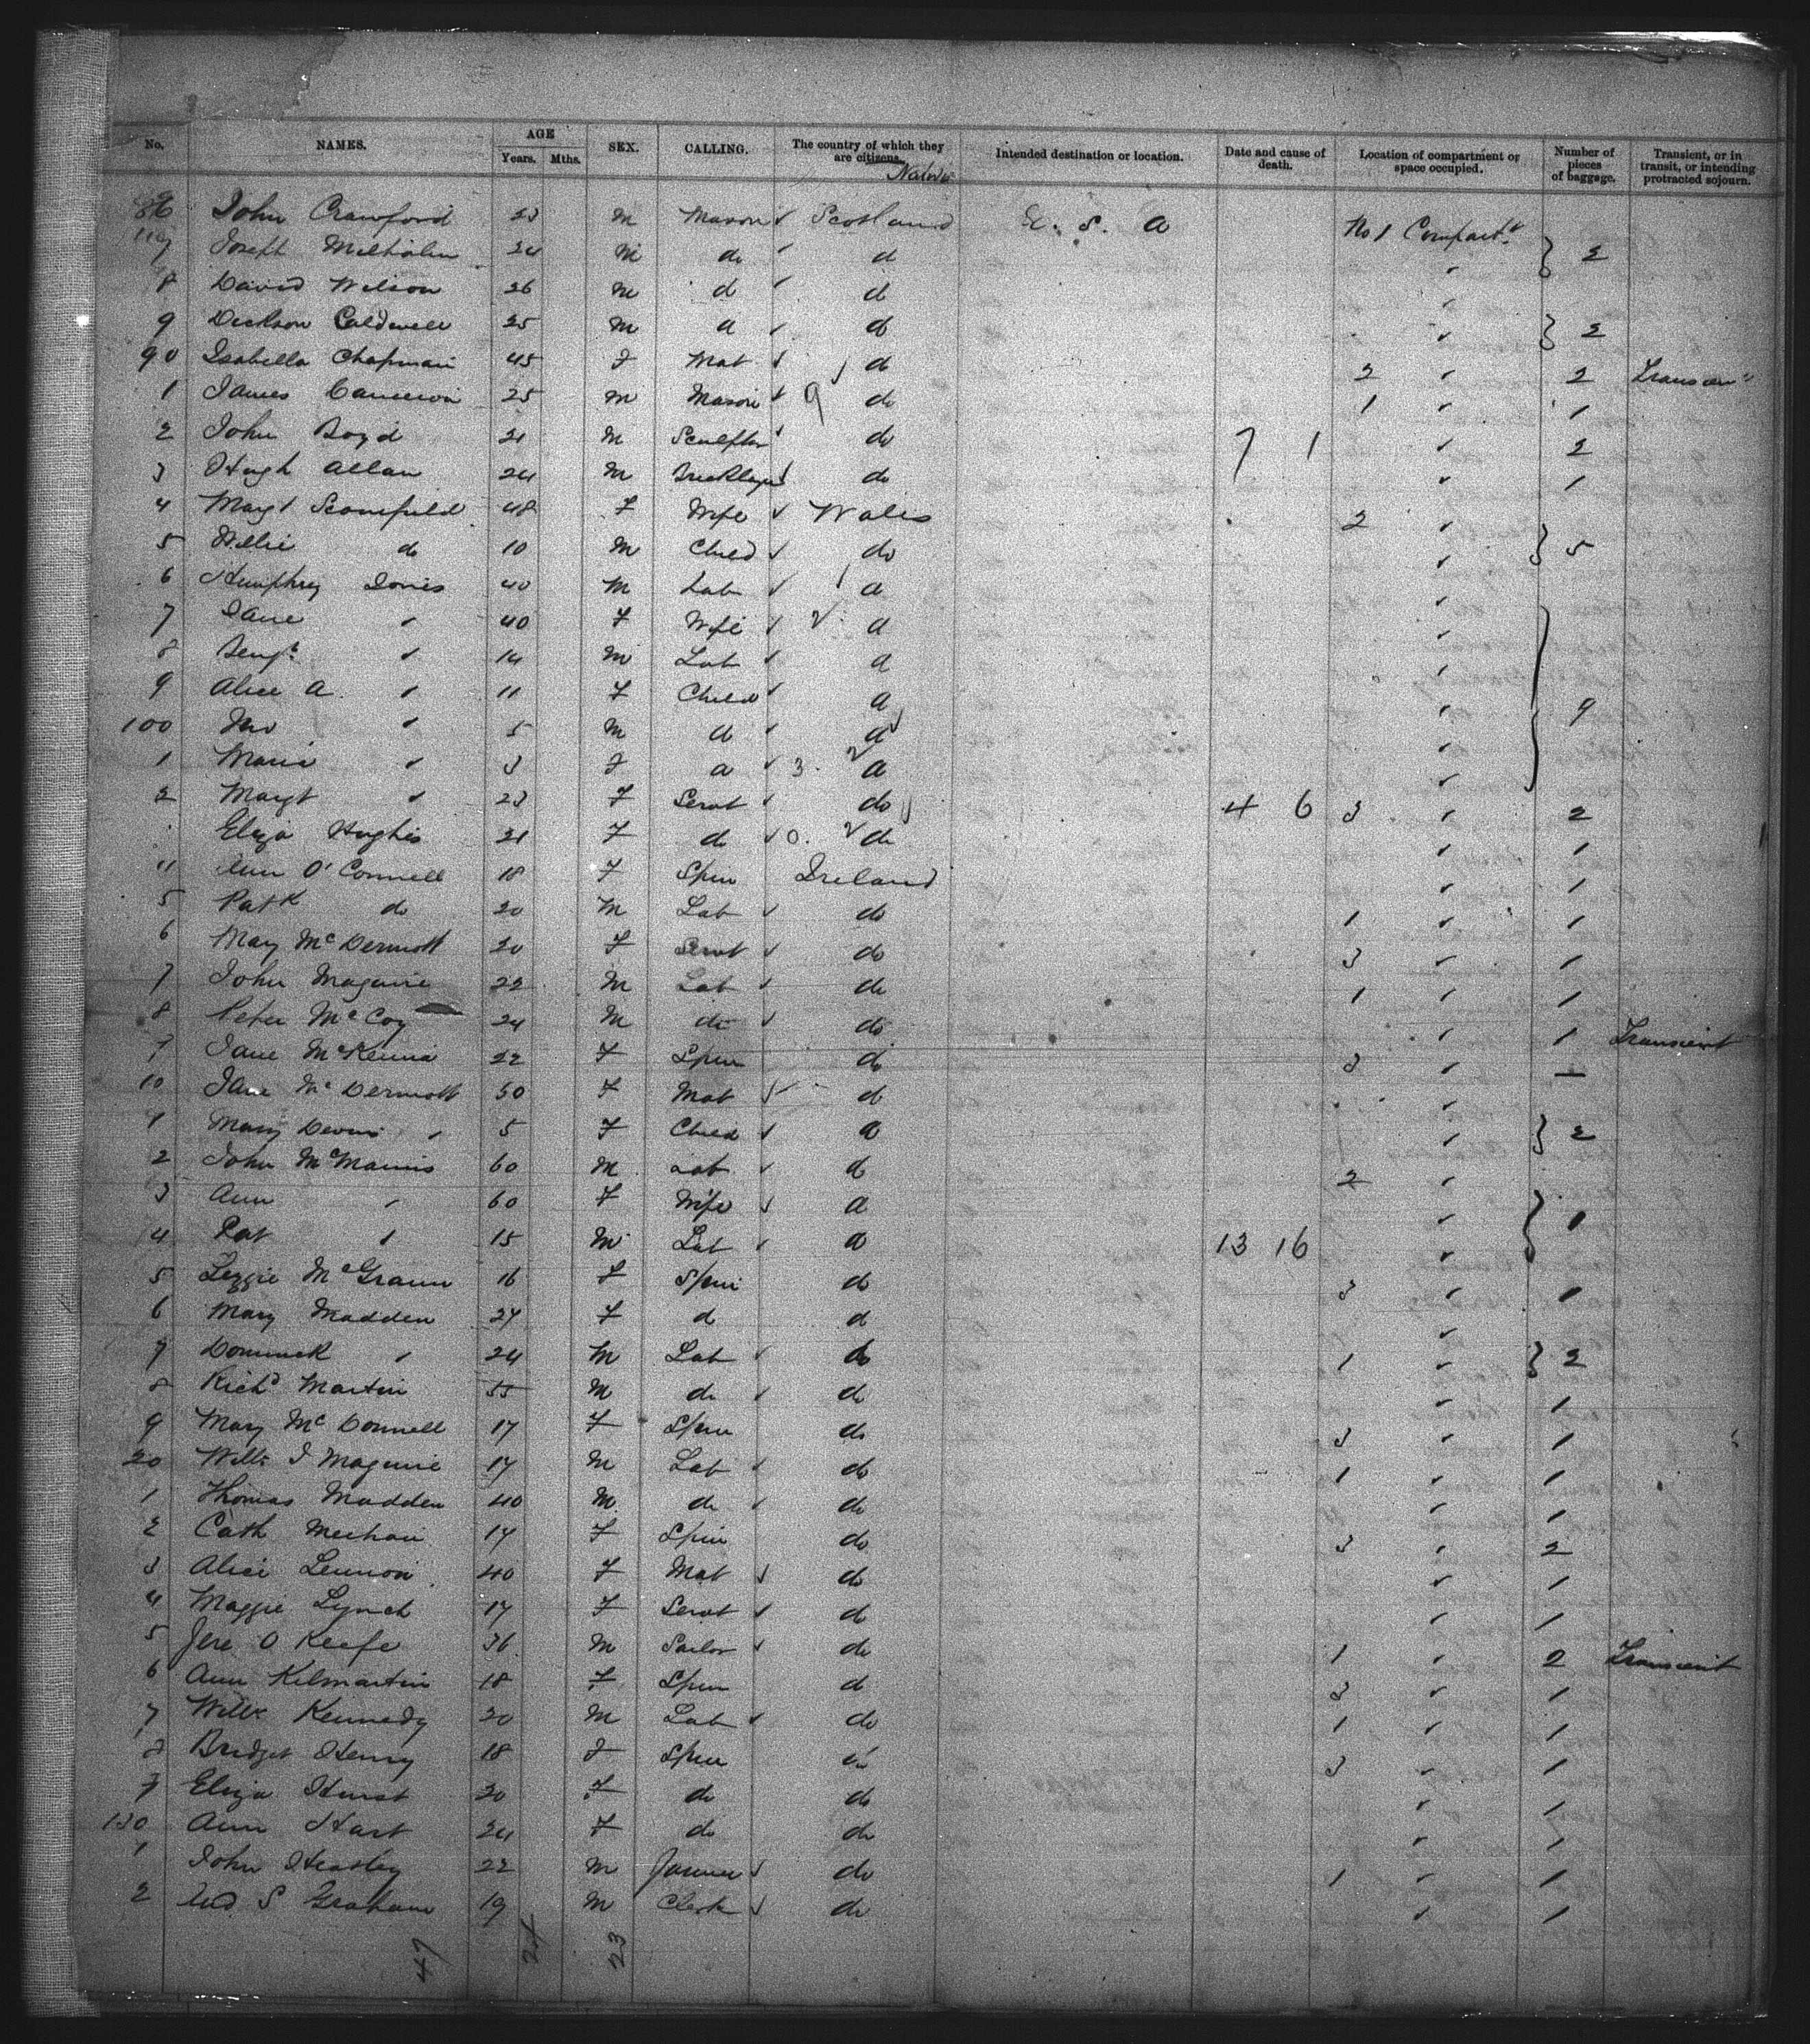 No. NAMES. AGE Years. Mths. SEX. CALLING. The country of which they are citizens. Native Intended destination or location. Date and cause of death. Location of compartment or space occupied. Number of pieces of baggage. Transient, or in transit, or intending protracted sojourn.
86 John Crawford 23 M Mason Scotland U. S. A No 1 Compartt
7 Joseph 24 M do d } 2
8 David Wilson 26 M d d
9 Dickson Caldwell 25 M d d } 2
90 Isabella Chapman 45 F Mat d 2 2 Transient
1 James Cameron 25 M Mason 9 do 1 1
2 John Boyd 21 M Sculptor do 7 1 2
3 Hugh Allan 24 M Bricklayer do 1
4 Margt Scourfield 48 F Wife Wales 2
5 Willie do 10 M Child do } 5
6 Humphrey Jones 40 M Lab d
7 Jane " 40 F Wife d
8 Benjn " 14 M Lab d
9 Alice A. " 11 F Child d 9
100 Jno " 5 M d d
1 Maria " 3 F d 3. d
2 Margt " 23 F Servt do 4 6 3 2
Eliza Hughes 21 F do 0. do 1
4 Ann O'Connell 18 F Spin Ireland 1
5 Patk do 20 M Lab do 1 1
6 Mary McDermott 20 F Servt do 3 1
7 John Maguire 22 M Lab do 1 1
8 Peter McCoy 24 M do do 1 Transient
9 Jane McKenna 22 F Spin do 3 —
10 Jane McDermott 50 F Mat d
1 Mary " 5 F Child d } 2
2 John McManus 60 M Lab d 2
3 Ann " 60 F Wife d } 1
4 Pat " 15 M Lab d 13 16
5 Lizzie McGrann 16 F Spin do 3 1
6 Mary Madden 24 F d d
7 Dominick " 24 M Lab do 1 } 2
8 Richd Martin 55 M do do 1
9 Mary McDonnell 17 F Spin do 3 1
20 Willm J Maguire 17 M Lab do 1 1
1 Thomas Madden 40 M do do 1
2 Cath Meehan 17 F Spin do 3 2
3 Alice Lennon 40 F Mat do 1
4 Maggie Lynch 17 F Servt do 1
5 Jere O Keefe 36 M Sailor do 1 2 Transient
6 Ann Kilmartin 18 F Spin d 3 1
7 Willm Kennedy 20 M Lab do 1 1
8 Bridget Henry 18 F Spin do 3 1
9 Eliza Hurst 20 F do do 1
130 Ann Hart 24 F do do 1
1 John Heasley 22 M Farmer do 1 1
2 S Graham 19 M Clerk do 1
47 24 23